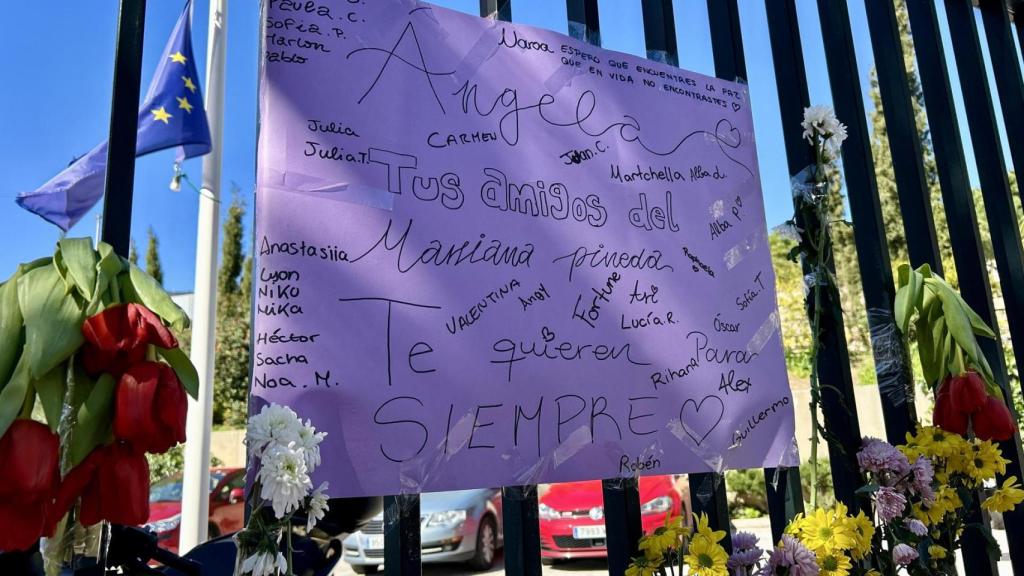 Paula.C.
Sofia.P.
Marlon
Pablo
Naroa ESPERO QUE ENCUENTRES LA PAZ
QUE EN VIDA NO ENCONTRASTES
Angela
Julia
Julia.T.
CARMEN
Juan.C.
Martchella Alba d.
Tus amigos del
Alba P.
Mariana pineda
Raphaela
Anastasiia
Lyon
NiKU
Nika
Héctor
Sacha
Noa.M.
VALENTINA
Andy
Fortune
Ari
Lucía R.
Sofía T
Óscar
Te quieren Para
Rihana
Alex
SIEMPRE
Guillermo
Robén